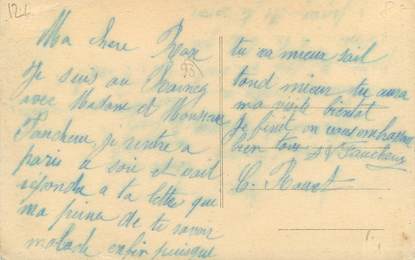 12.6
Ma chere Rose
Je suis au Raincy
avec Madame et Monsieur
Faucheux, je rentre a
paris a soir et vait
répondre a ta lettre que
ma peine de te savoir
malade enfin puisque
tu va mieux sait
tand mieux tu aura
ma visite bientot
Je finit on vous embrasse
bien tous
C.